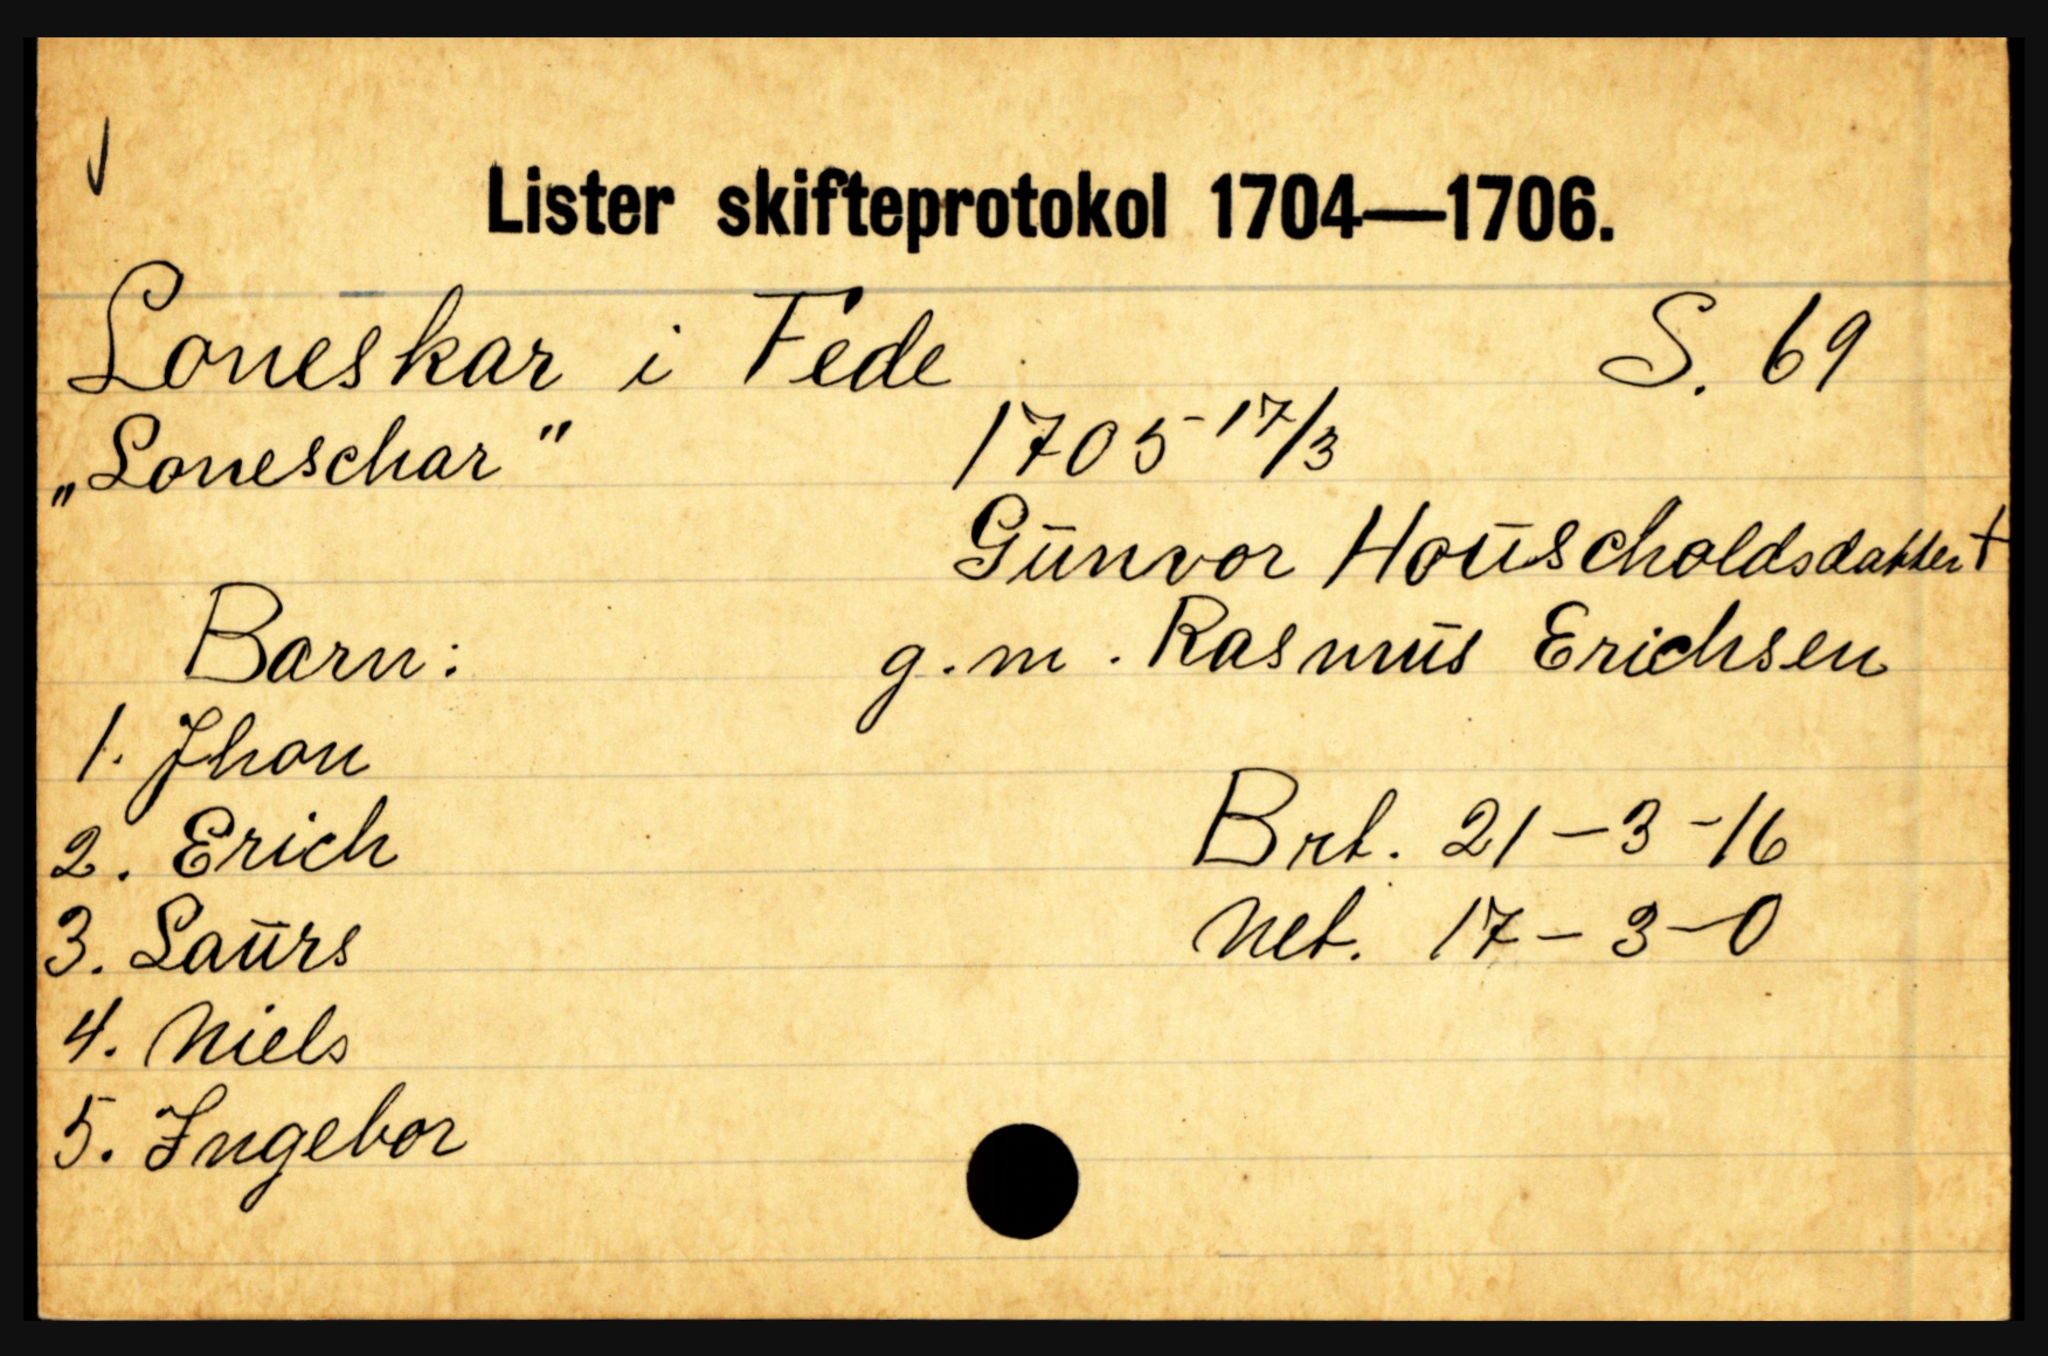 Lister skifteprotokol 1704—1706.
Loneskar i Fede S. 69
„Loneschar"
1705 17/3
Gūnvor Hoūscholdsdatter †
Barn: g.m. Rasmūs Erichsen
1. Jhon
2. Erich Brt. 21-3-16
3. Laūrs Net. 17-3-0
4. Niels
5. Ingebor